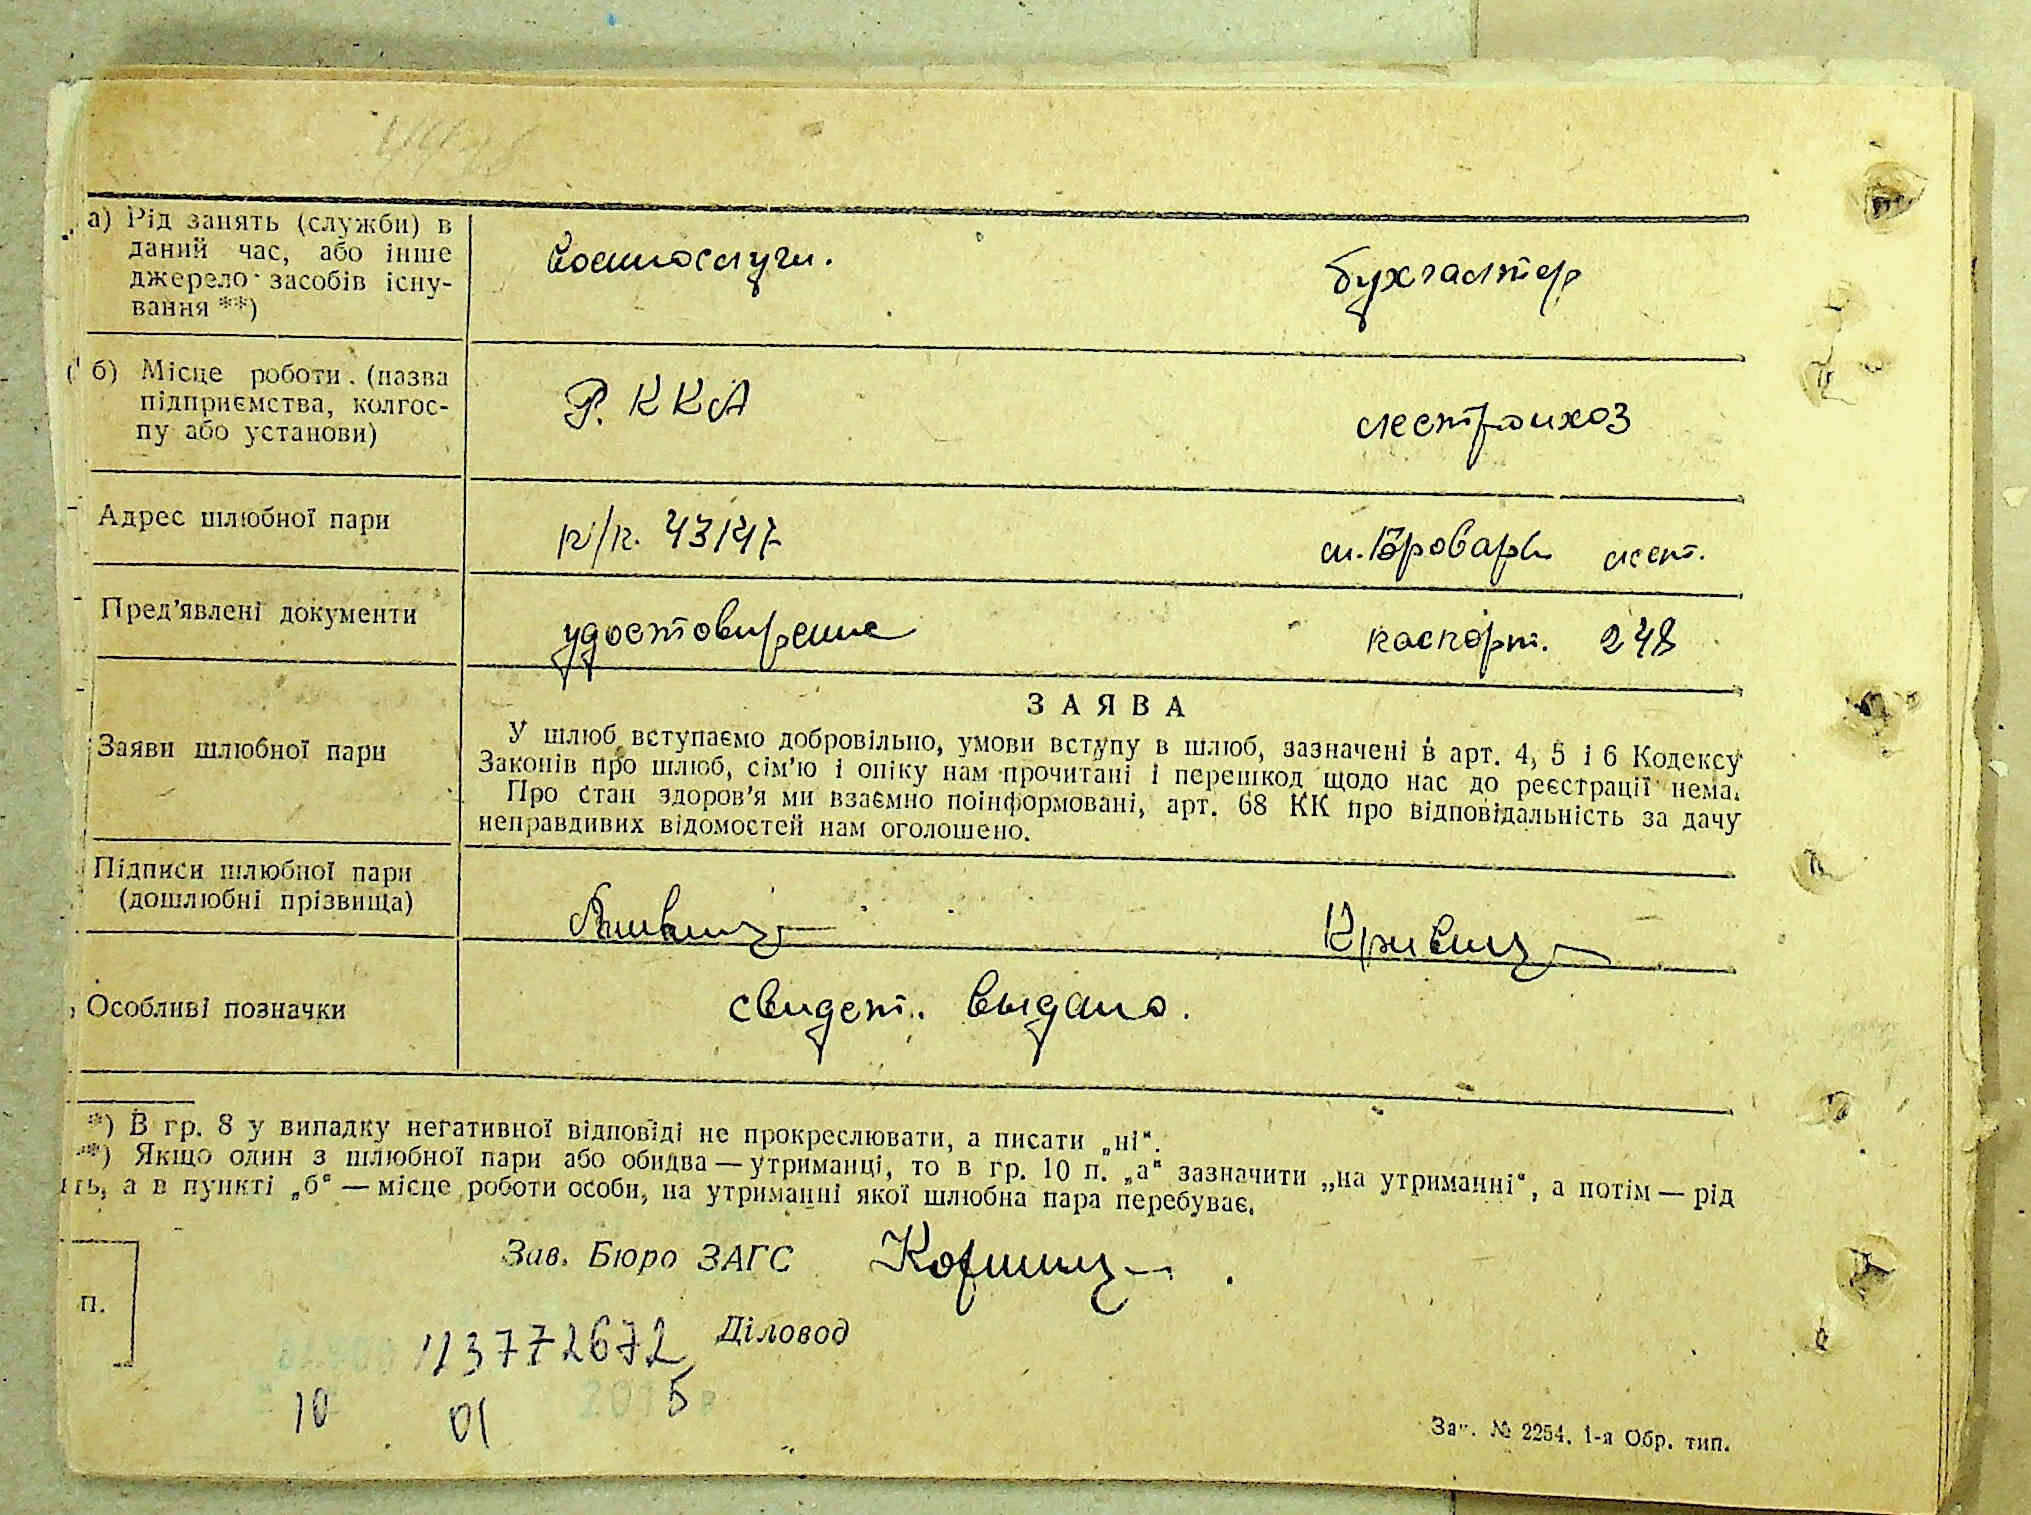 а) Рід занять (служби) в
даний час, або інше
джерело засобів існу-
вання **)
военнослуж.
бухгалтер
б) Місце роботи. (назва
підприємства, колгос-
пу або установи)
Р. ККА
Адрес шлюбної пари
п/п. 43147
м. Бровары
Пред'явлені документи
удостовирение
паспорт. 248
Заяви шлюбної пари
ЗАЯВА
У шлюб вступаємо добровільно, умови вступу в шлюб, зазначені в арт. 4, 5 і 6 Кодексу
Законів про шлюб, сім'ю і опіку нам прочитані і перешкод щодо нас до реєстрації нема.
Про стан здоров'я ми взаємно поінформовані, арт. 68 КК про відповідальність за дачу
неправдивих відомостей нам оголошено.
Підписи шлюбної пари
(дошлюбні прізвища)
Особливі позначки
свидет. выдано.
*) В гр. 8 у випадку негативної відповіді не прокреслювати, а писати „ні“.
**) Якщо один з шлюбної пари або обидва — утриманці, то в гр. 10 п. „а“ зазначити „на утриманні“, а потім — рід
ть, а в пункті „б“ — місце роботи особи, на утриманні якої шлюбна пара перебуває.
Зав. Бюро ЗАГС
п.
Діловод
113772672
10 01 2015 р
Зак. № 2254. 1-я Обр. тип.